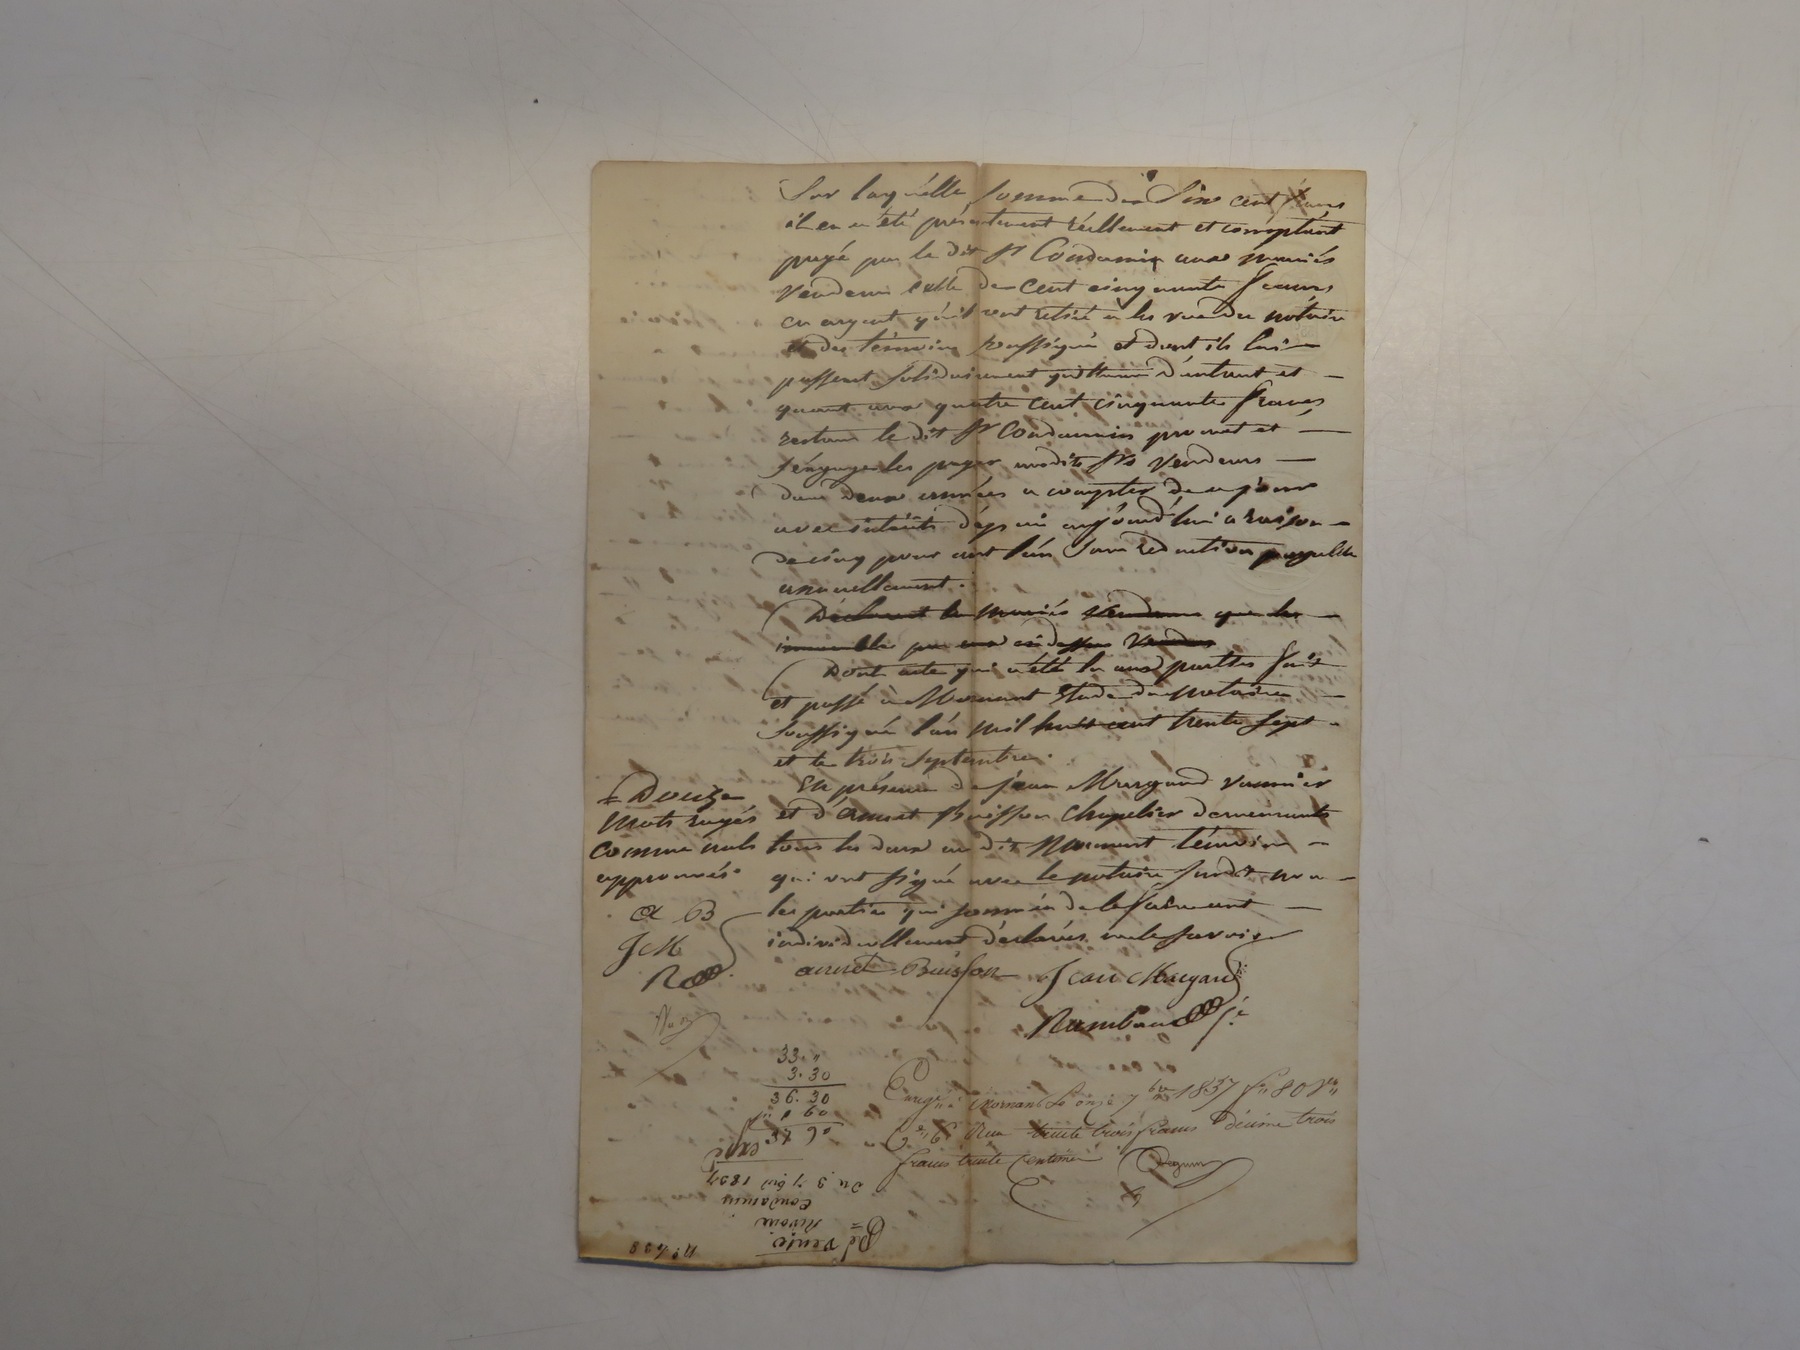 Sur laquelle somme de Six cent francs
il en a été présentement réellement et comptant
payé par le dit Sr Condamin aux mariés
vendeurs celle de cent cinquante francs
en argent qu'il ont retiré a les vue du notaire
et des témoins soussigné et dont ils lui
passent solidairement quittance d'autant et
quant aux quatre cent cinquante francs
restans le dit Sr Condamin promet et
s'engage les payer audits Srs vendeurs
dans deux années a compter de ce jour
avec intérêts depuis aujourd'hui a raison
de cinq pour cent l'an sans reduction payable
annuellement.
Déclarent les mariés vendeurs que les
immeubles par eux cidessus vendus
Dont acte qui a été lu aux parties fait
et passé a Mornant Etude du notaire
soussigné l'an mil huit cent trente sept
et le trois septembre.
En présence de Jean Margand vannier
et d'Annet Buisson Chapelier demeurants
tous les deux au dit Mornant témoins
qui ont signé avec le notaire susdit non
les parties qui sommés de le faire ont
individuellement déclarés ne le savoir
+ Douze
mots rayés
comme nuls
approuvés.
A B
J M
R
annet Buisson Jean Margand
Rambaud
33. "
3. 30
36. 30
1 60
37 90
Enregé à Mornant Le onze 7bre 1837 fo 80 Vo
Ce 6 Reçu trente trois francs décime trois
francs trente Centimes
expé
Du 3 7bre 1837
Condamin
Rivoire
Vente
No 408